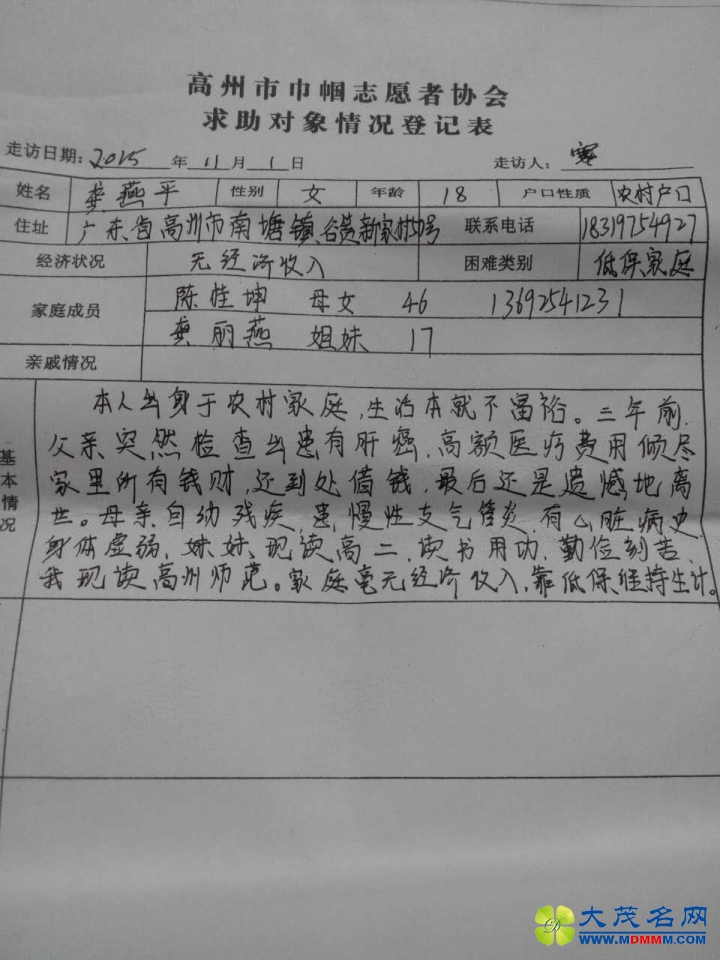 高州市巾帼志愿者协会
求助对象情况登记表
走访日期：2015 年 11 月 1 日 走访人：
姓名 龚燕平 性别 女 年龄 18 户口性质 农村户口
住址 广东省高州市南塘镇谷贡新家村50号 联系电话 18319754927
经济状况 无经济收入 困难类别 低保家庭
家庭成员 陈桂坤 母女 46 13692541231
龚丽燕 姐妹 17
亲戚情况
基本情况
本人出身于农村家庭，生活本就不富裕。三年前
父亲突然检查出患有肝癌，高额医疗费用倾尽
家里所有钱财，还到处借钱，最后还是遗憾地离
世。母亲自幼残疾，患慢性支气管炎，有心脏病史
身体虚弱，妹妹现读高二，读书用功，勤俭刻苦，
我现读高州师范。家庭毫无经济收入，靠低保维持生计。
大茂名网
WWW.MDMMM.COM